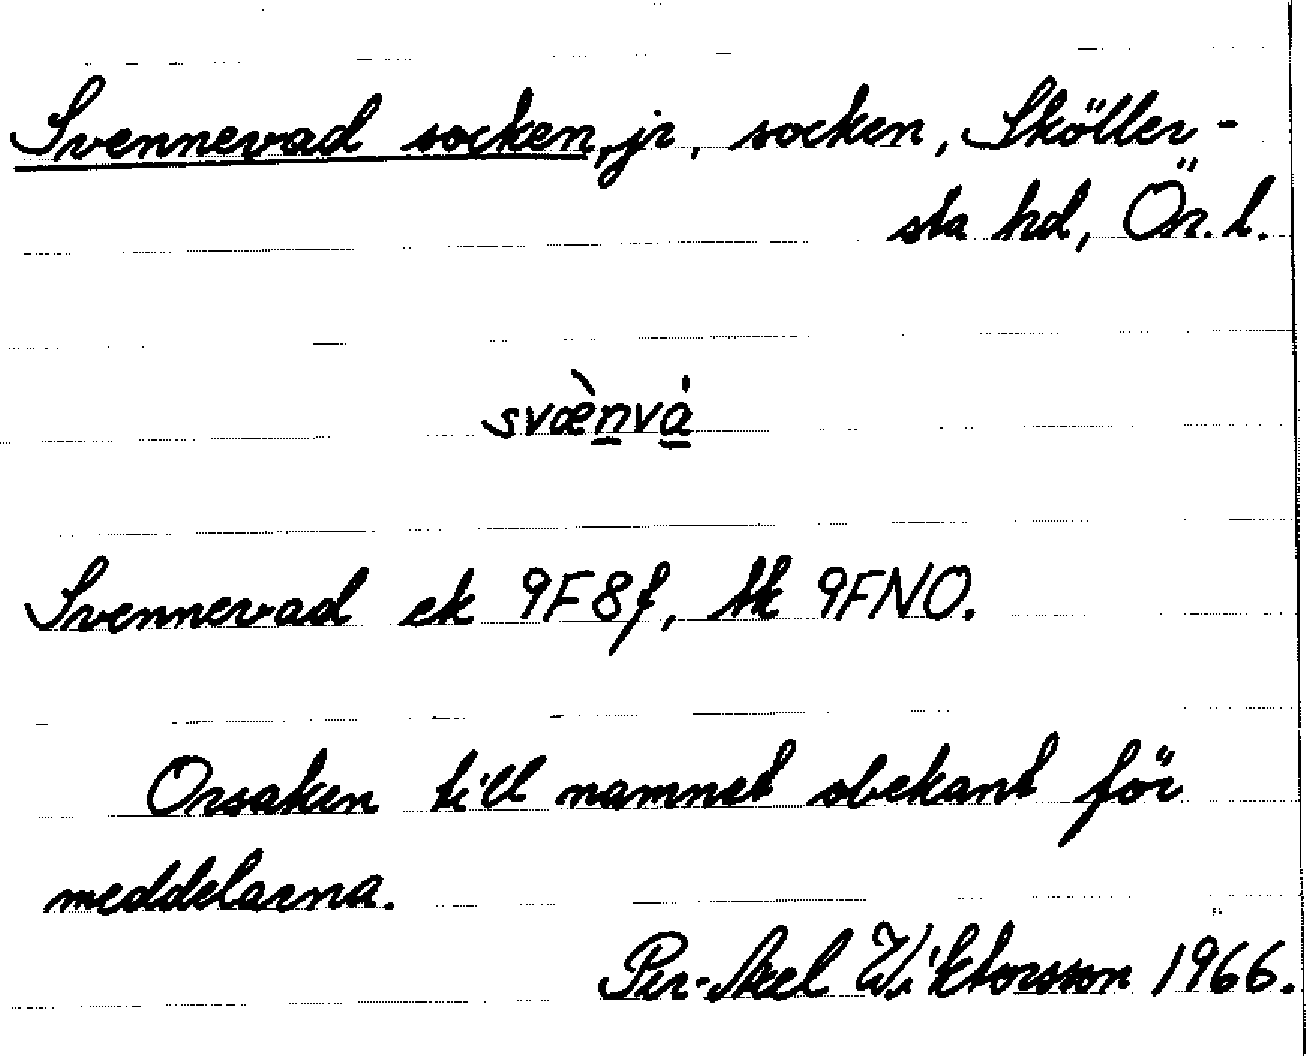 Svennevad socken, jr, socken, Sköller-
sta hd, Ör. l.
svæ̀nvȧ
Svennevad ek 9F8f, tk 9FNO.
Orsaken till namnet obekant för
meddelarna.
Per-Axel Wiktorsson 1966.